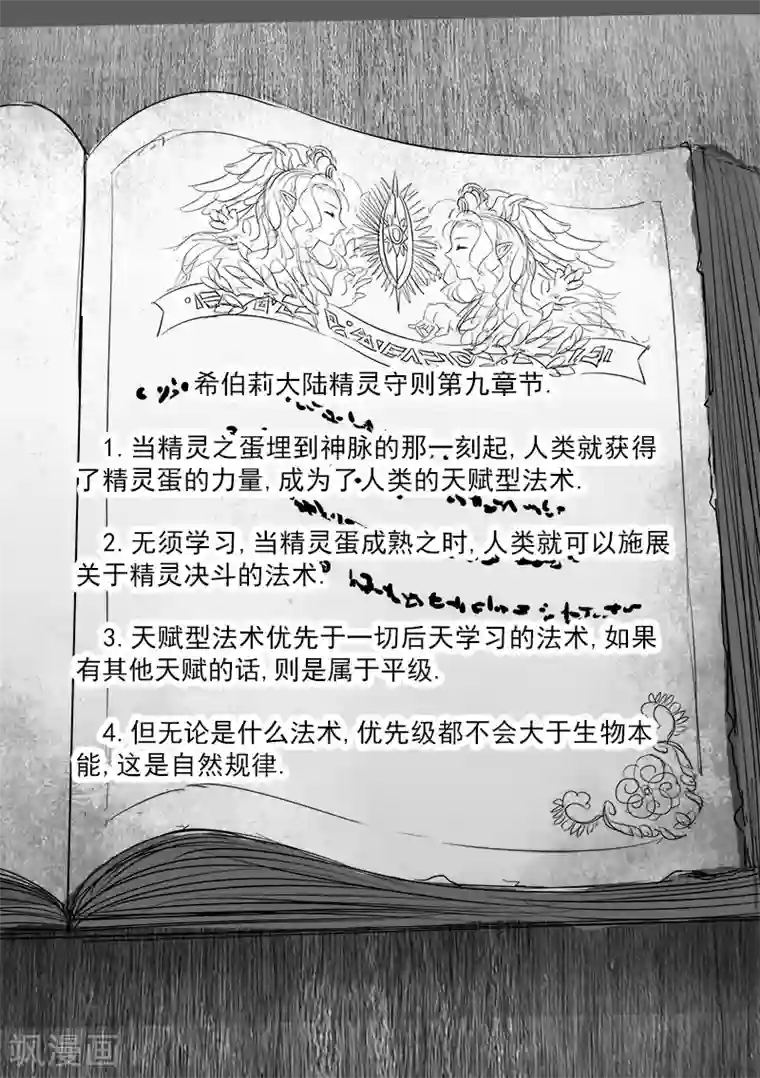 希伯莉大陆精灵守则第九章节.
1. 当精灵之蛋埋到神脉的那一刻起, 人类就获得
了精灵蛋的力量, 成为了人类的天赋型法术.
2. 无须学习, 当精灵蛋成熟之时, 人类就可以施展
关于精灵决斗的法术.
3. 天赋型法术优先于一切后天学习的法术, 如果
有其他天赋的话, 则是属于平级.
4. 但无论是什么法术, 优先级都不会大于生物本
能, 这是自然规律.
飒漫画